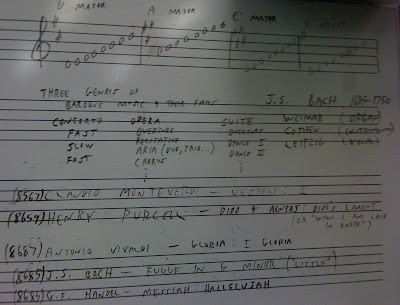 D MAJOR A MAJOR C MAJOR
THREE GENRES OF
BAROQUE MUSIC & THEIR FORMS J.S. BACH 1685-1750
CONCERTO OPERA SUITE WEIMAR (ORGAN)
FAST OVERTURE OVERTURE COTHEN
SLOW RECITATIVE DANCE I LEIPZIG (VOCAL)
FAST ARIA (DUO, TRIO...) DANCE II
CHORUS
(8567) CLAUDIO MONTEVERDI - VESPERS: I
(8659) HENRY PURCELL - DIDO & AENEAS: DIDO'S LAMENT
(OR "WHEN I AM LAID
IN EARTH")
(8687) ANTONIO VIVALDI - GLORIA: I GLORIA
(8685) J.S. BACH - FUGUE IN G MINOR ("LITTLE")
(8685) G.F. HANDEL - MESSIAH: HALLELUJAH